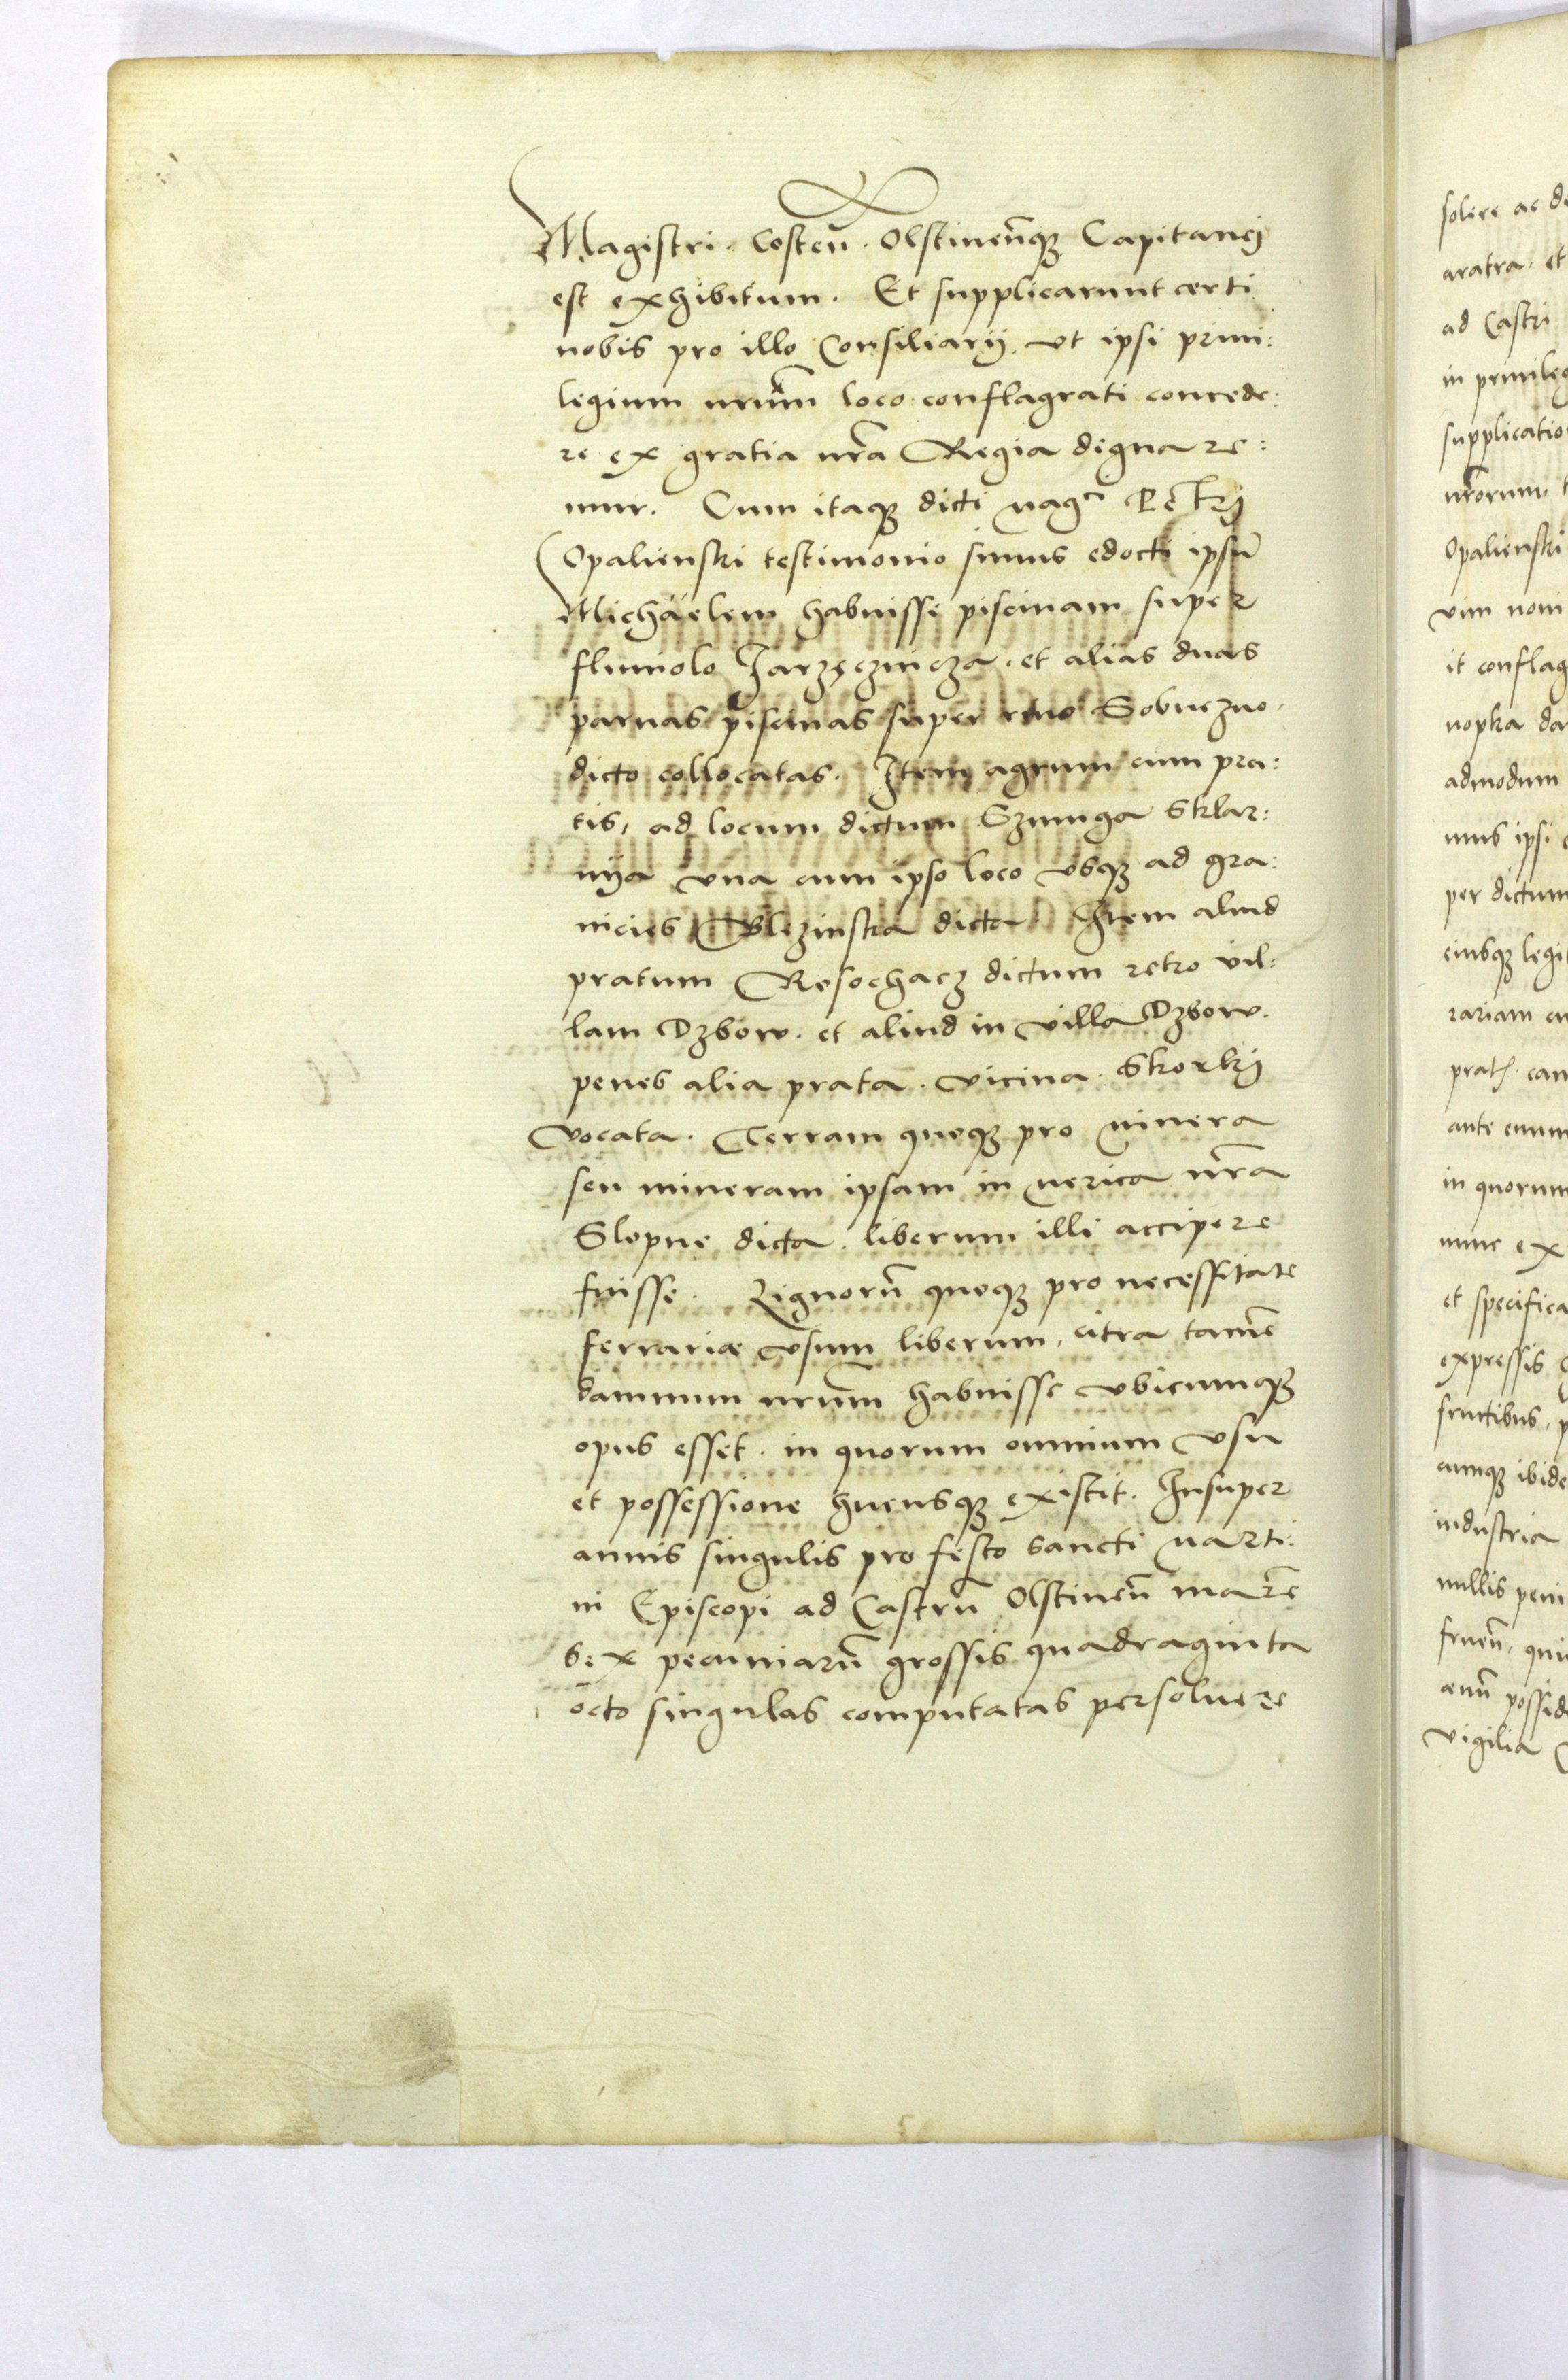 Magistri. Costeñ. Olstineñq́ꝫ Capitanej
est exhibitum. Et supplicarunt certi
nobis pro illo Consiliarij. vt ipsi priui:
legium nrũm loco conflagrati concede:
re ex gratia nrã Regia dignare:
mur. Cum itaqꝫ dicti Magci Petrj
Opalienski testimonio simus edocti ipsũ
Michaelem habuisse piscinam super
fluuiolo Jarzęcznicza. et alias duas
paruas piscinas super riuo Sobuczno
dicto collocatas. Item agrum cum pra:
tis, ad locum dictum Szmuga Sklar:
nija vna cum ipso loco vsqꝫ ad gra:
nicies Blizinska dicta Item aliud
pratum Rosochacz dictum retro vil:
lam Dzbow. et aliud in villa Dzbow.
penes alia prata. vicina. Skorkj
vocata. Terram quoqꝫ pro minera
seu mineram ipsam in merica nrã
Slopne dicta. liberum illi accipere
fuisse. Lignorũ quoqꝫ pro necessitate
ferrariæ vsum liberum, citra tamẽ
damnum nrũm habuisse vbicumqꝫ
opus esset. in quorum omnium vsu
et possessione hucusqꝫ existit. Insuper
annis singulis pro festo sancti Marti:
ni Episcopi ad Castrũ Olstineñ marc̃
sex pecuniarũ grossis quadraginta
octo singulas computatas persoluere
solere ac de
aratra. et
ad Castri
in priuileg
supplicatio
nrõrum.
Opalienski
vim noui
it conflag
nopka da
admodum
mus ipsi
per dictum
eiusqꝫ legi
rariam cu
prat. cam
ante enum
in quorum
nunc ex
et specifica
expressis
fructibus,
cumqꝫ ibide
industria
nullis peni
frueñ, qui
æuũ posside
vigilia